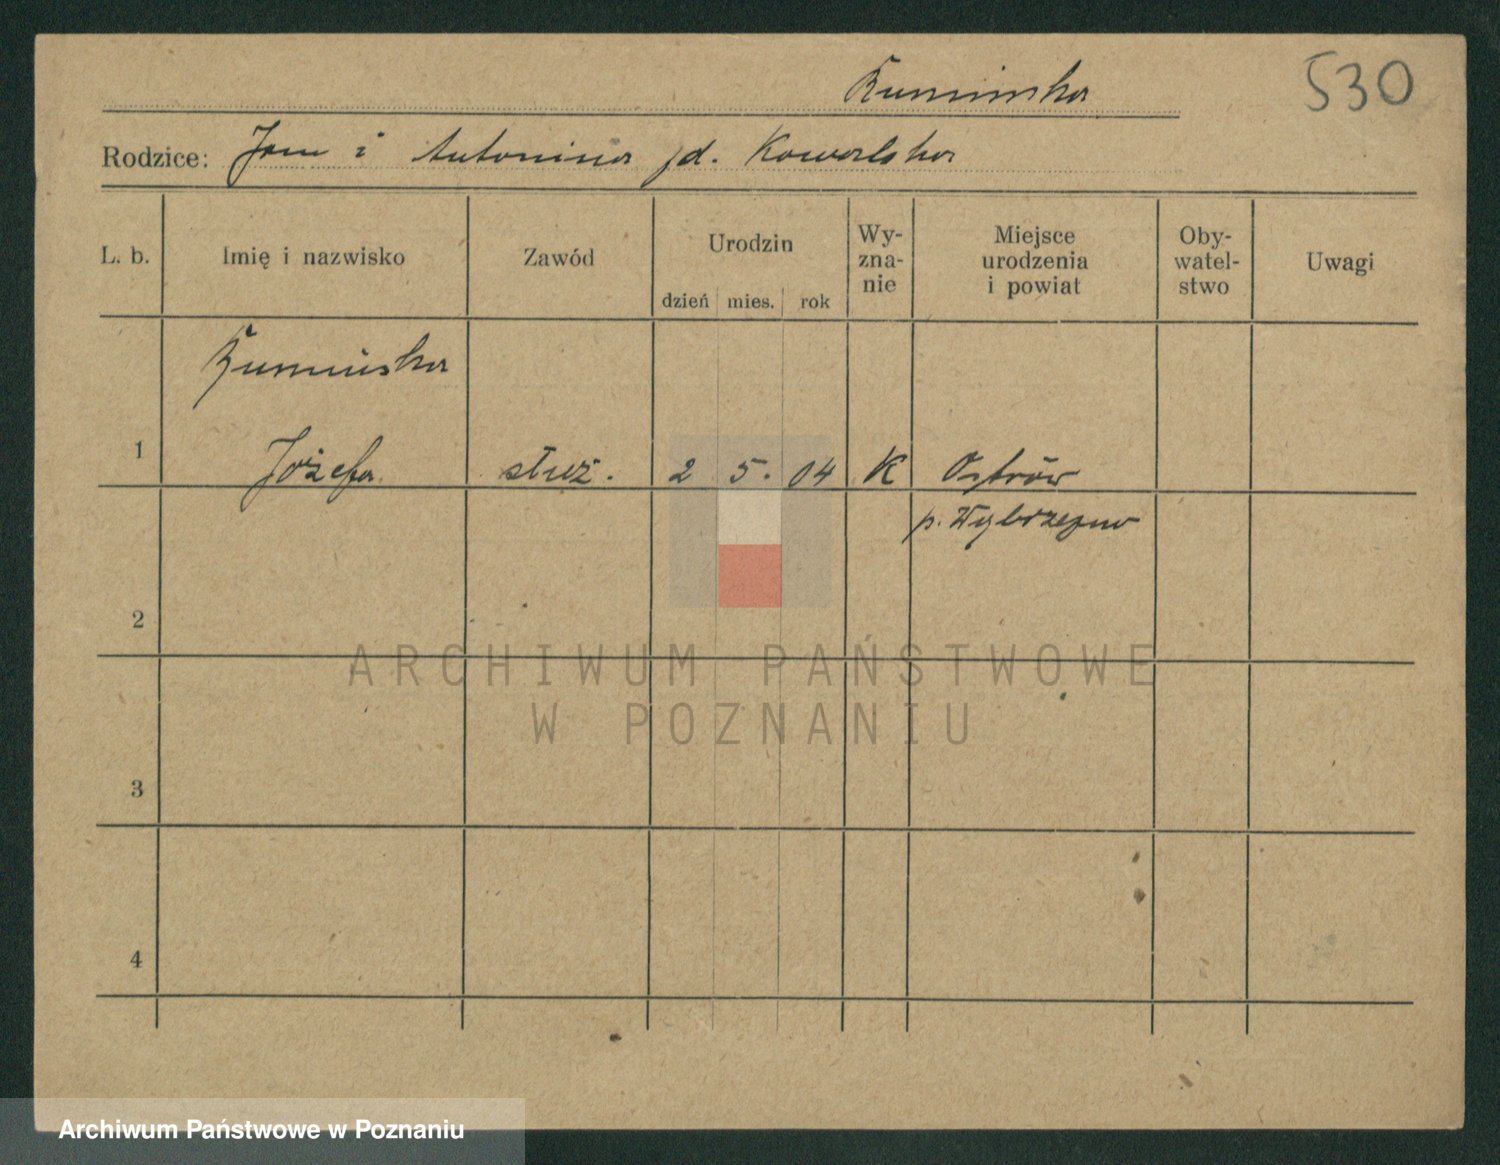 530
Rodzice: Jan i Antonina jd. Kowalska
L. b.
Imię i nazwisko
Zawód
Urodzin
dzień mies. rok
Wy-
zna-
nie
Miejsce
urodzenia
i powiat
Oby-
watel-
stwo
Uwagi
1
Józefa
służ.
2 5. 04
K
Ostrów
p.
2
3
4
ARCHIWUM PAŃSTWOWE
W POZNANIU
Archiwum Państwowe w Poznaniu